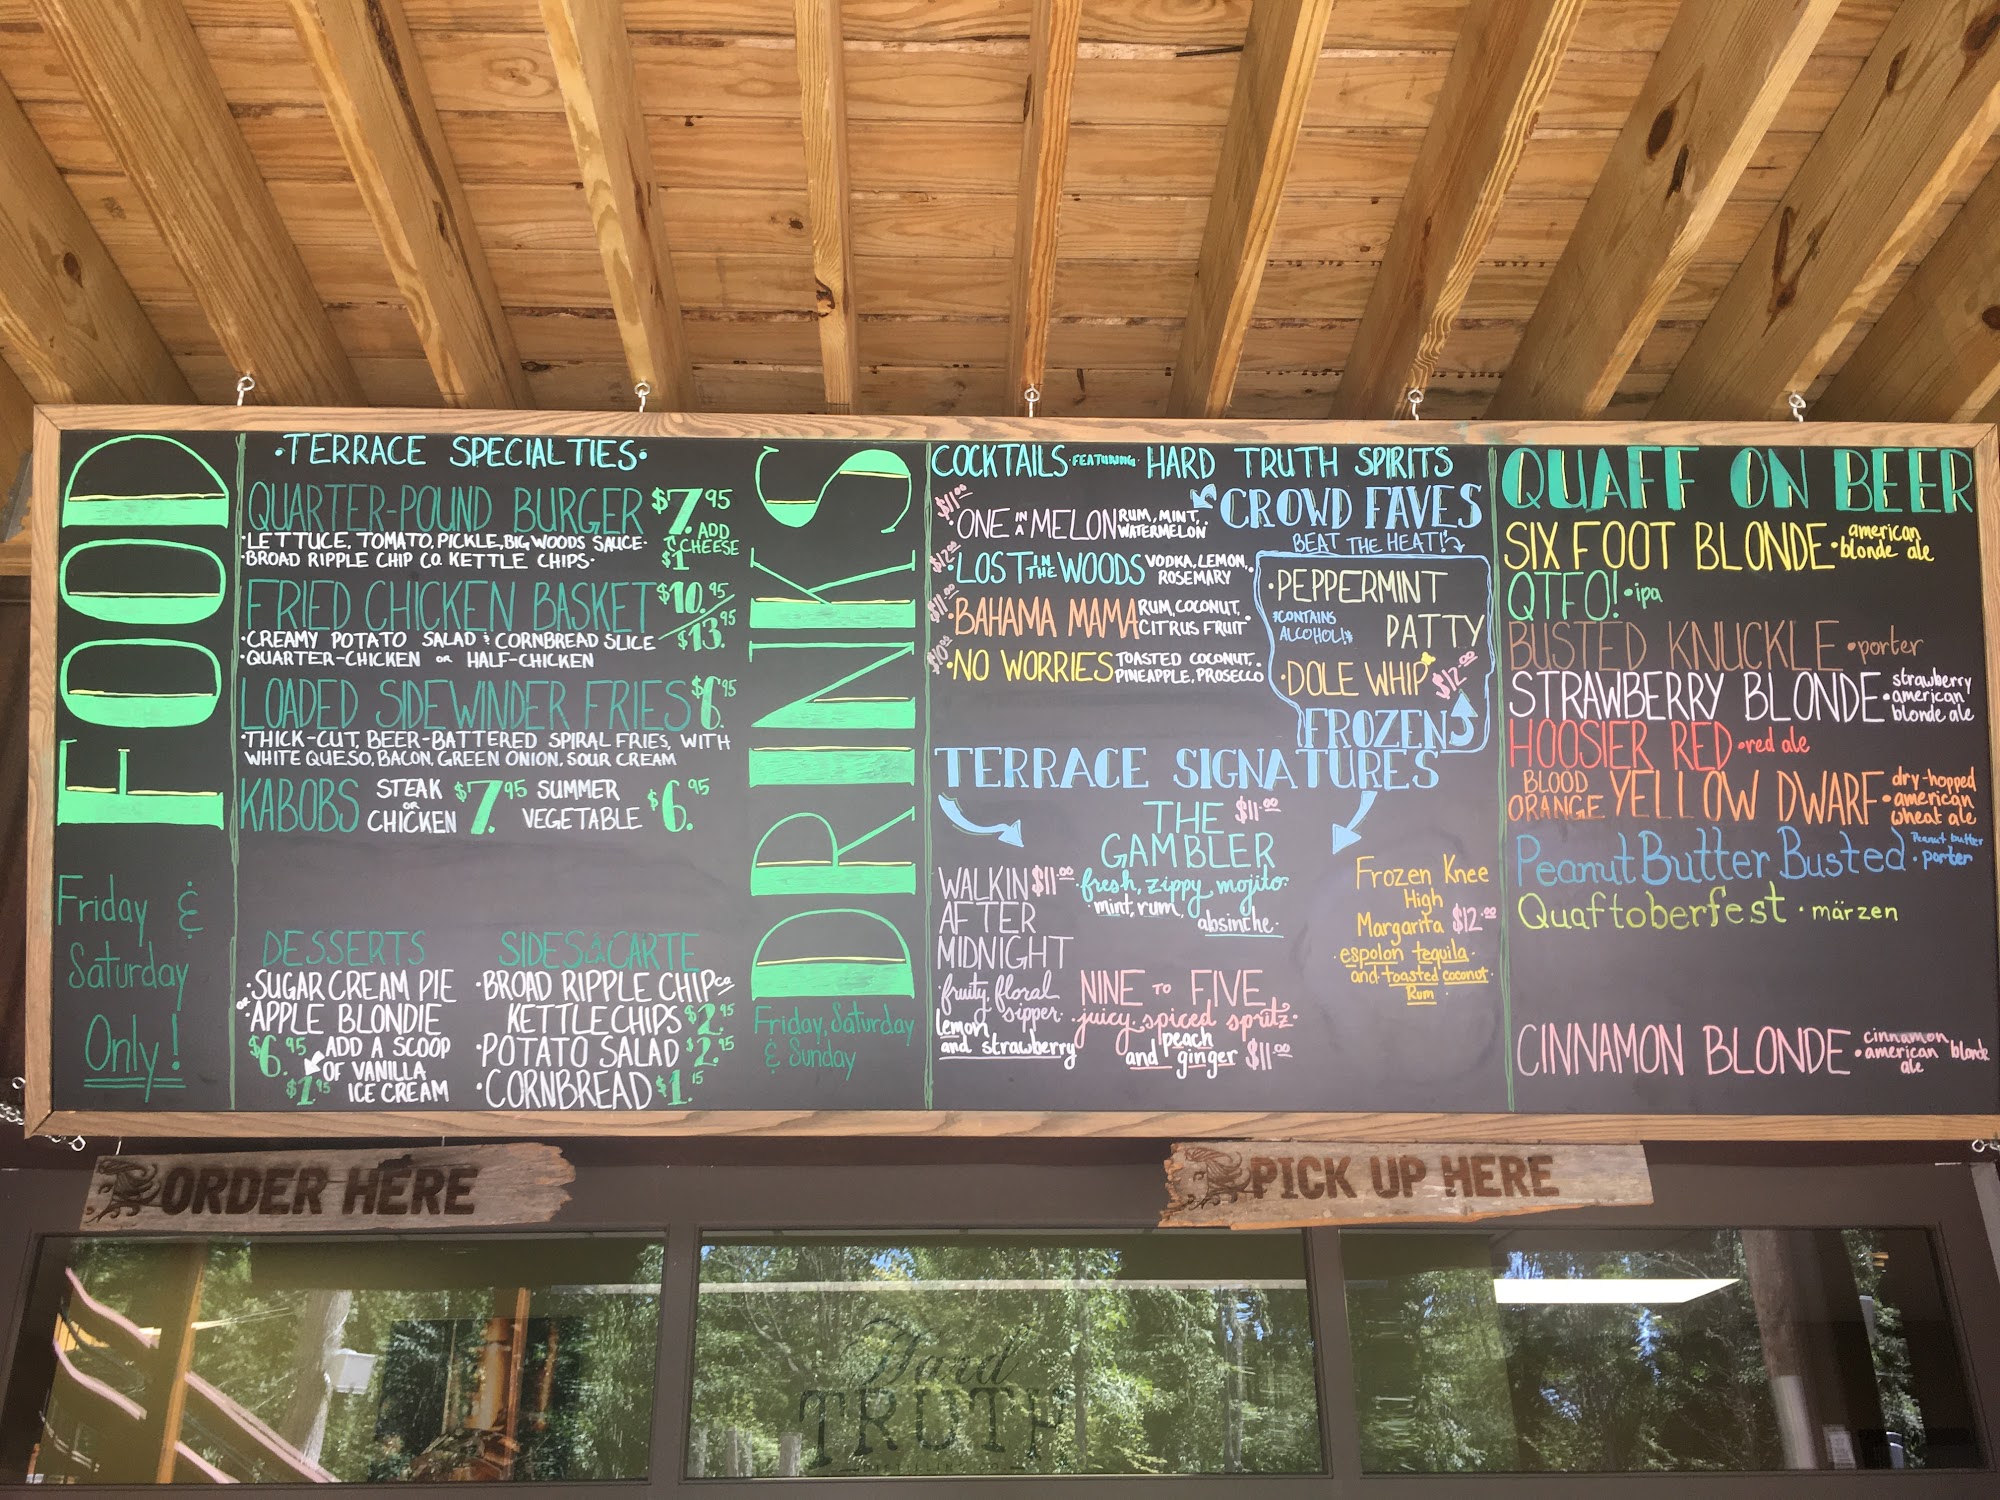 FOOD
Friday &
Saturday
Only!
·TERRACE SPECIALTIES·
QUARTER-POUND BURGER $7.95
·LETTUCE, TOMATO, PICKLE, BIG WOODS SAUCE·
·BROAD RIPPLE CHIP CO. KETTLE CHIPS·
ADD
CHEESE
$1
FRIED CHICKEN BASKET $10.95/
$13.95
·CREAMY POTATO SALAD & CORNBREAD SLICE
·QUARTER-CHICKEN or HALF-CHICKEN
LOADED SIDEWINDER FRIES $6.95
·THICK-CUT, BEER-BATTERED SPIRAL FRIES, WITH
WHITE QUESO, BACON, GREEN ONION, SOUR CREAM
KABOBS STEAK OR CHICKEN $7.95 SUMMER VEGETABLE $6.95
DESSERTS
·SUGAR CREAM PIE
or
·APPLE BLONDIE
$6.95
ADD A SCOOP
OF VANILLA
ICE CREAM
$1.95
SIDES A LA CARTE
·BROAD RIPPLE CHIP CO
KETTLE CHIPS $2.95
·POTATO SALAD $2.95
·CORNBREAD $1.15
DRINKS
Friday, Saturday
& Sunday
COCKTAILS ·FEATURING· HARD TRUTH SPIRITS
CROWD FAVES
$11.00
·ONE IN A MELON RUM, MINT,
WATERMELON
$12.00
·LOST IN THE WOODS VODKA, LEMON,
ROSEMARY
$11.00
·BAHAMA MAMA RUM, COCONUT,
CITRUS FRUIT
$10.00
·NO WORRIES TOASTED COCONUT,
PINEAPPLE, PROSECCO
BEAT THE HEAT!
·PEPPERMINT
PATTY
*CONTAINS
ALCOHOL!*
·DOLE WHIP* $12.00
FROZEN
TERRACE SIGNATURES
THE $11.00
GAMBLER
·fresh, zippy mojito·
mint, rum,
absinthe·
WALKIN $11.00
AFTER
MIDNIGHT
fruity, floral
sipper·
lemon
and strawberry
NINE TO FIVE
·juicy, spiced spritz·
peach
and ginger $11.00
Frozen Knee
High
Margarita $12.00
·espolon tequila
and toasted coconut·
Rum
QUAFF ON BEER
SIX FOOT BLONDE ·american
blonde ale
QTFO! ·ipa
BUSTED KNUCKLE ·porter
STRAWBERRY BLONDE ·strawberry
american
blonde ale
HOOSIER RED ·red ale
BLOOD
ORANGE YELLOW DWARF ·dry-hopped
american
wheat ale
Peanut Butter Busted ·Peanut butter
porter
Quaftoberfest ·märzen
CINNAMON BLONDE ·cinnamon
american blonde
ale
ORDER HERE
PICK UP HERE
Hard
TRUTH